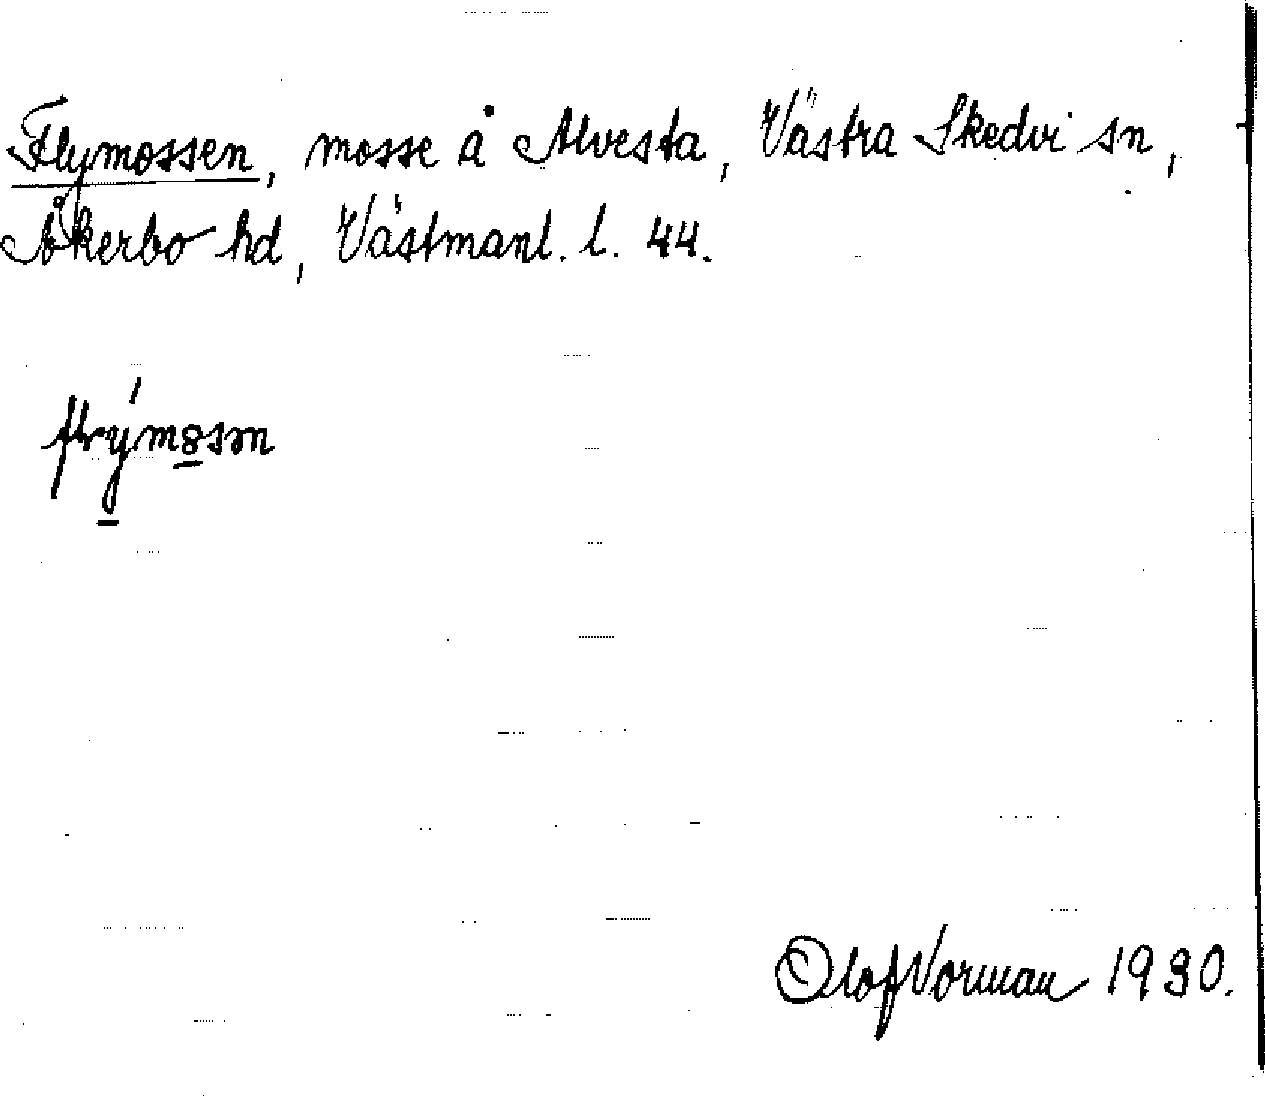 Flymossen, mosse å Alvesta, Västra Skedvi sn,
Åkerbo hd, Västmanl. l. 44.
Olof Norman 1930.